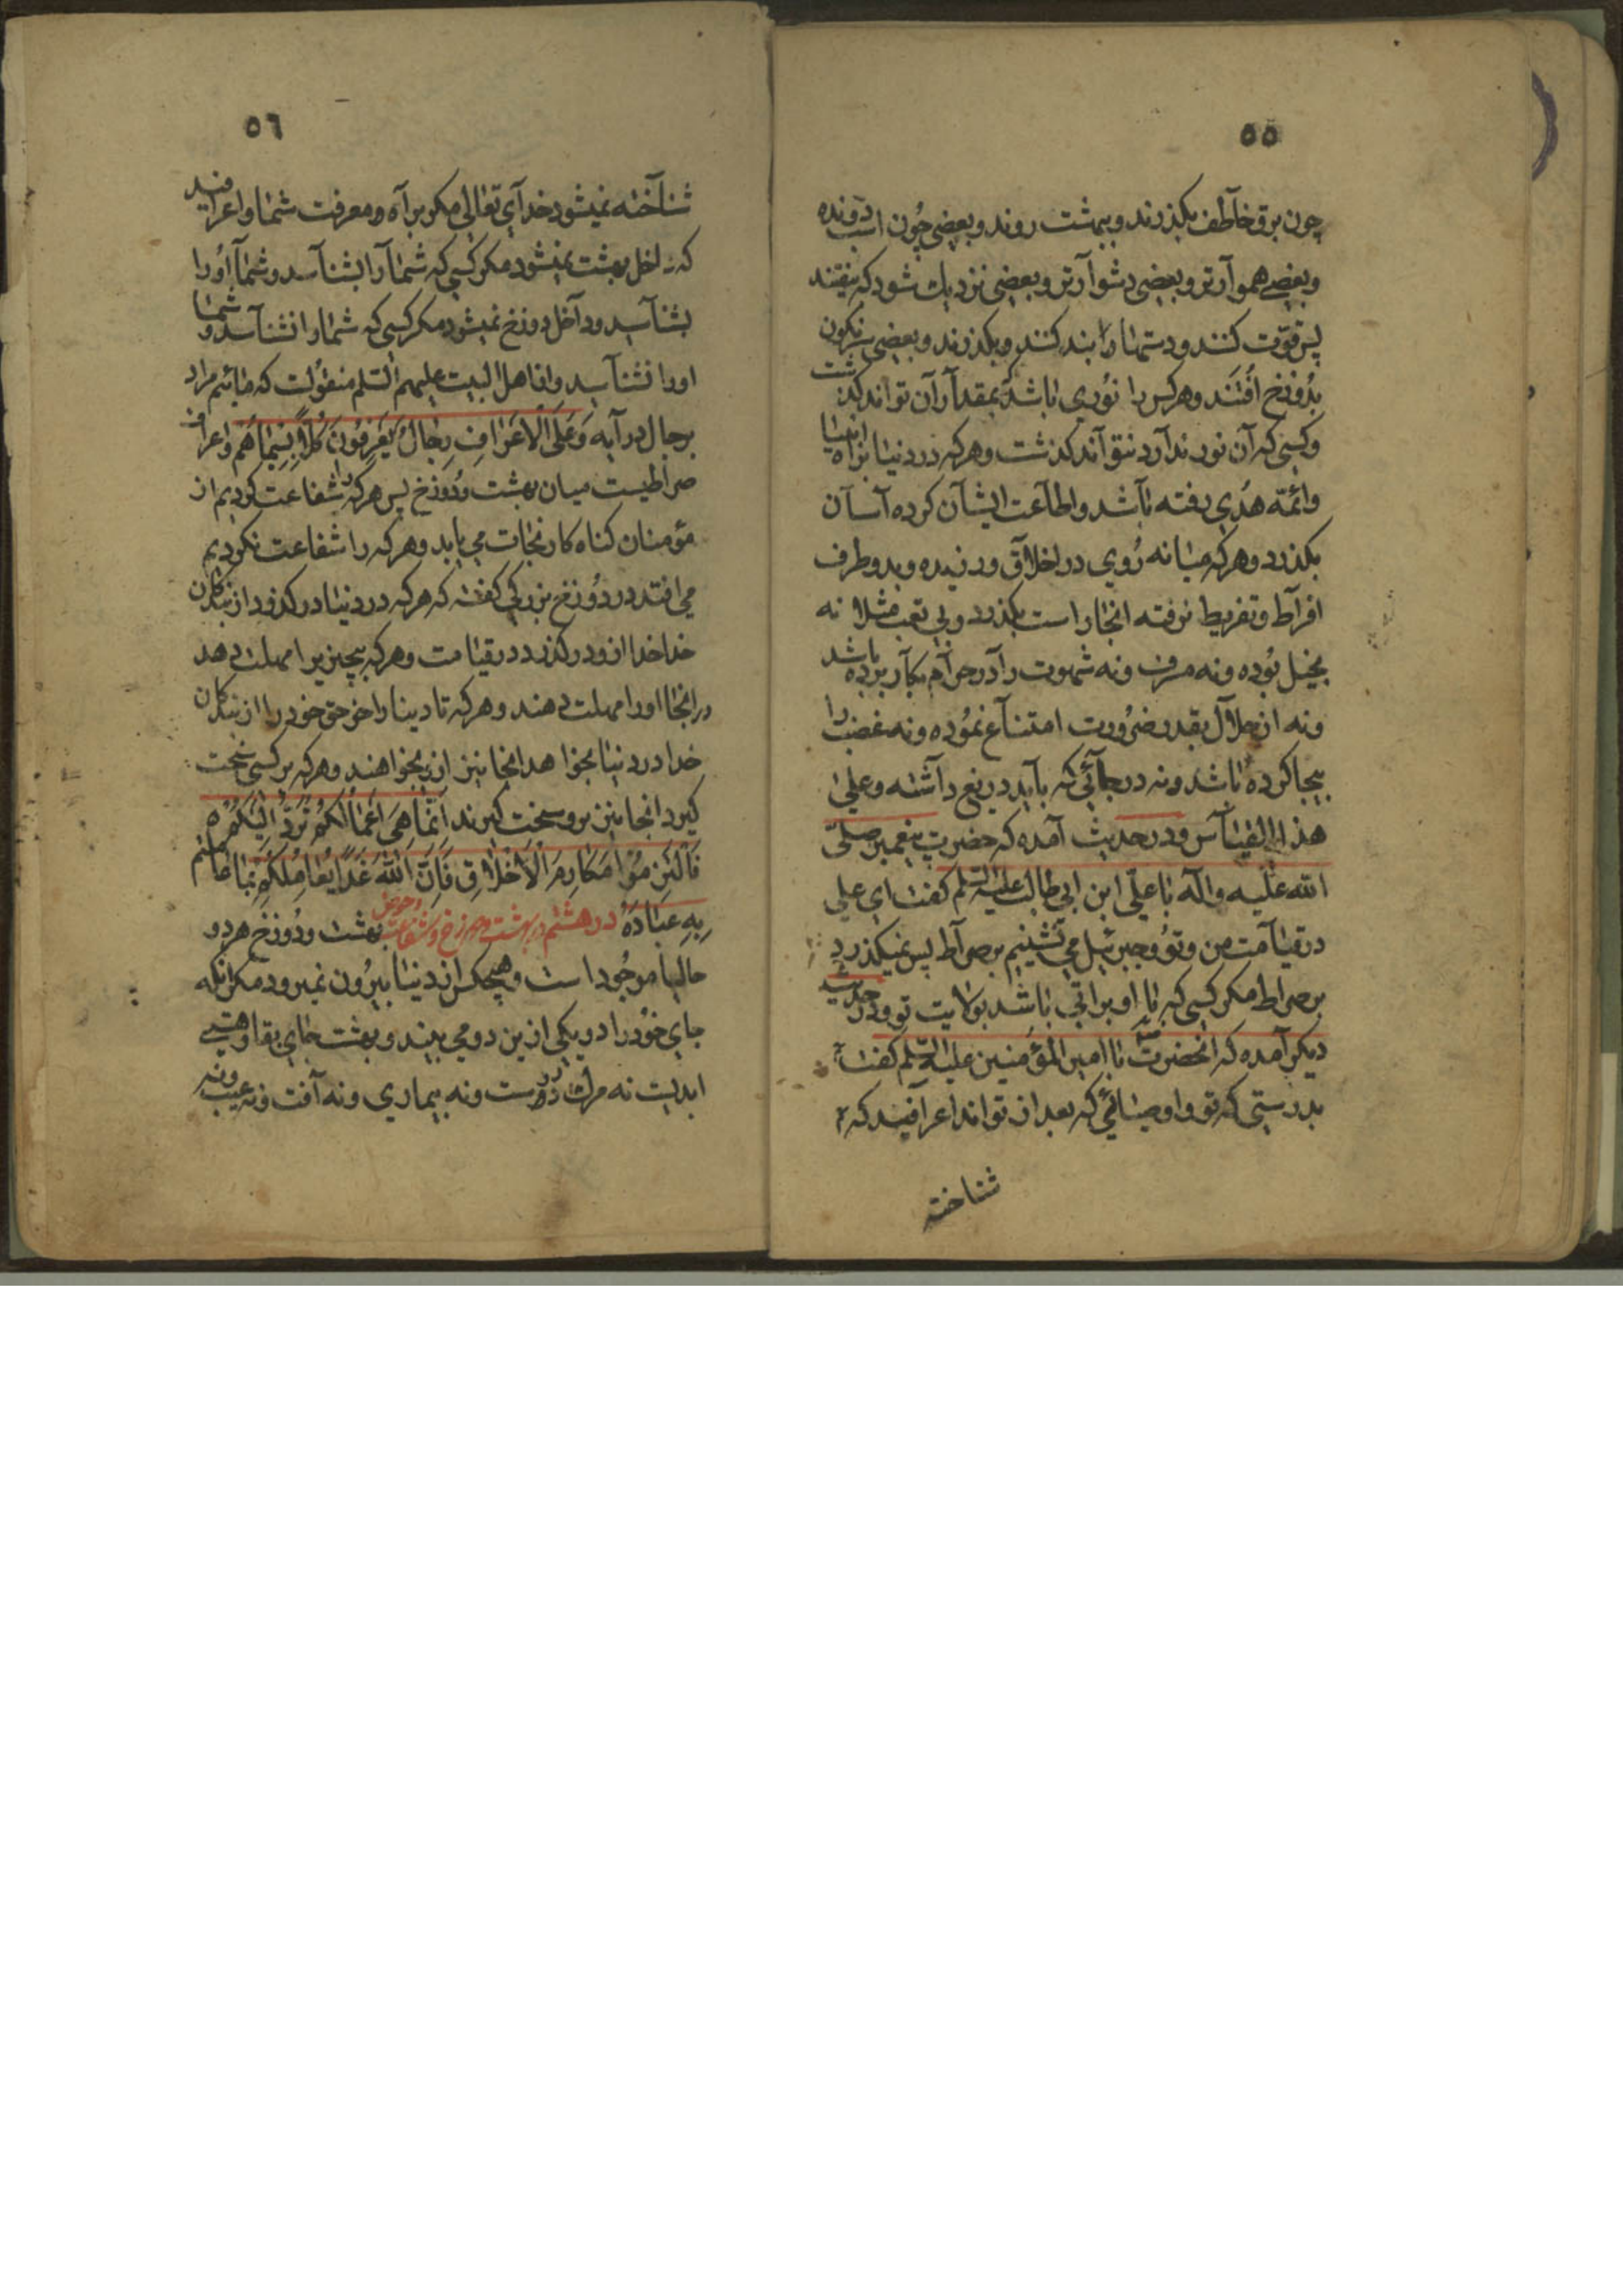 ٥٥
چون برق خاطف بکذرند و ببهشت روند و بعضی چون اسب دونده
و بعضی هموارتر و بعضی دشوارتر و بعضی نزدیك شود که بیفتند
پس قوّت کنند و دستها را بند کنند و بکذرند و بعضی سرنکون
بدُوزخ افتند و هر کس را نوری باشد بمقدار آن تواند کذشت
و کسی که آن نور ندارد نتواند کذشت و هر که در دنیا براه انبیا
و ائمّه هُدی رفته باشد و اطاعت ایشان کرده آسان
بکذرد و هر که میانه رُوی در اخلاق ورزیده و بدو طرف
افراط و تفریط نرفته انجا راست بکذرد و بی تعب مثلا نه
بخیل بُوده و نه مسرف و نه شهوت را در حرام بکار برده باشد
و نه از حلال بقدر ضرُورت امتناع نمُوده و نه غضب را
بیجا کرده باشد و نه در جائی که باید دریغ داشته و علی
هذا القیاس و در حدیث آمده که حضرت پیغمبر صلّی
الله علیه و آله با علی ابن ابی طالب علیه السلم کفت ای علی
در قیامت من و تو و جبرئیل می نشینیم بر صراط پس نمیکذرد
بر صراط مکر کسی که با او براتی باشد بولایت تو و در حدیث
دیکر آمده که انحضرت با امیر المؤمنین علیه السّلم کفت
بدرستی که تو و اوصیائی که بعد از تواند اعرافیند که
شناخته
٥٦
شناخته نمیشود خدای تعالی مکر براه و معرفت شما و اعرافیند
که داخل بهشت نمیشود مکر کسی که شما را بشناسد و شما اُورا
بشناسید و داخل دوزخ نمیشود مکر کسی که شما را نشناسد و شما
اورا نشناسید و از اهل البیت علیهم السّلم منقولست که مائیم مراد
برجال در آیه وَعَلَی الْاَعْرَافِ رِجَالٌ یَعْرِفُونَ کُلًّا بِسِیمَاهُمْ و اعراف
صراطیست میان بهشت و دُوزخ پس هر که را شفاعت کردیم از
مؤمنان کناه کار نجات می یابد و هر که را شفاعت نکردیم
می افتد در دُوزخ بزرکی کفته که هر که در دنیا در کذرد از بندکان
خدا خدا ازو در کذرد در قیامت و هر که بچیزیرا مهلت دهد
در انجا اورا مهلت دهند و هر که تا دینار اخر حق خود را از بندکان
خدا در دنیا بخواهد انجا نیز ازو بخواهند و هر که بر کسی سخت
کیرد انجا نیز برو سخت کیرند اِنَّمَا هِیَ اَعْمَالُکُمْ تُرَدُّ اِلَیْکُمْ
فَالْتَزِمُوا مَکَارِمَ الْاَخْلَاقِ فَاِنَّ اللهَ غَدًا یُعَامِلُکُمْ بِمَا عَامَلْتُمْ
بِهِ عِبَادَهُ در هشتم در بهشت و دوزخ و شفاعت و حوض بهشت و دُوزخ هر دو
حالیا موجُود است و هیچکس از دنیا بیرُون نمیرود مکر انکه
جای خُود را در یکی ازین دو می بیند و بهشت جای بقا و هستی
ابدیست نه مرك درو است و نه بیماری و نه آفت و نه عیب و نه